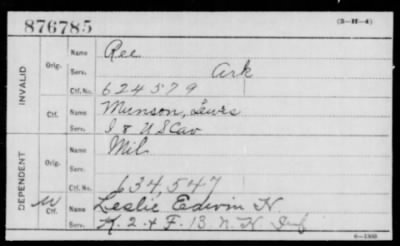 876785
(3-H-4)
INVALID
Orig.
Name Ree
Serv. Ark
Ctf. No. 624579
Ctf.
Name Munson, Lewis
Serv. I 8 US Cav
DEPENDENT
Orig.
Name Mil
Serv.
634,547
W Ctf.
Name Leslie Edwin N.
Serv. K. 2. & F. 13. N. H. Inf